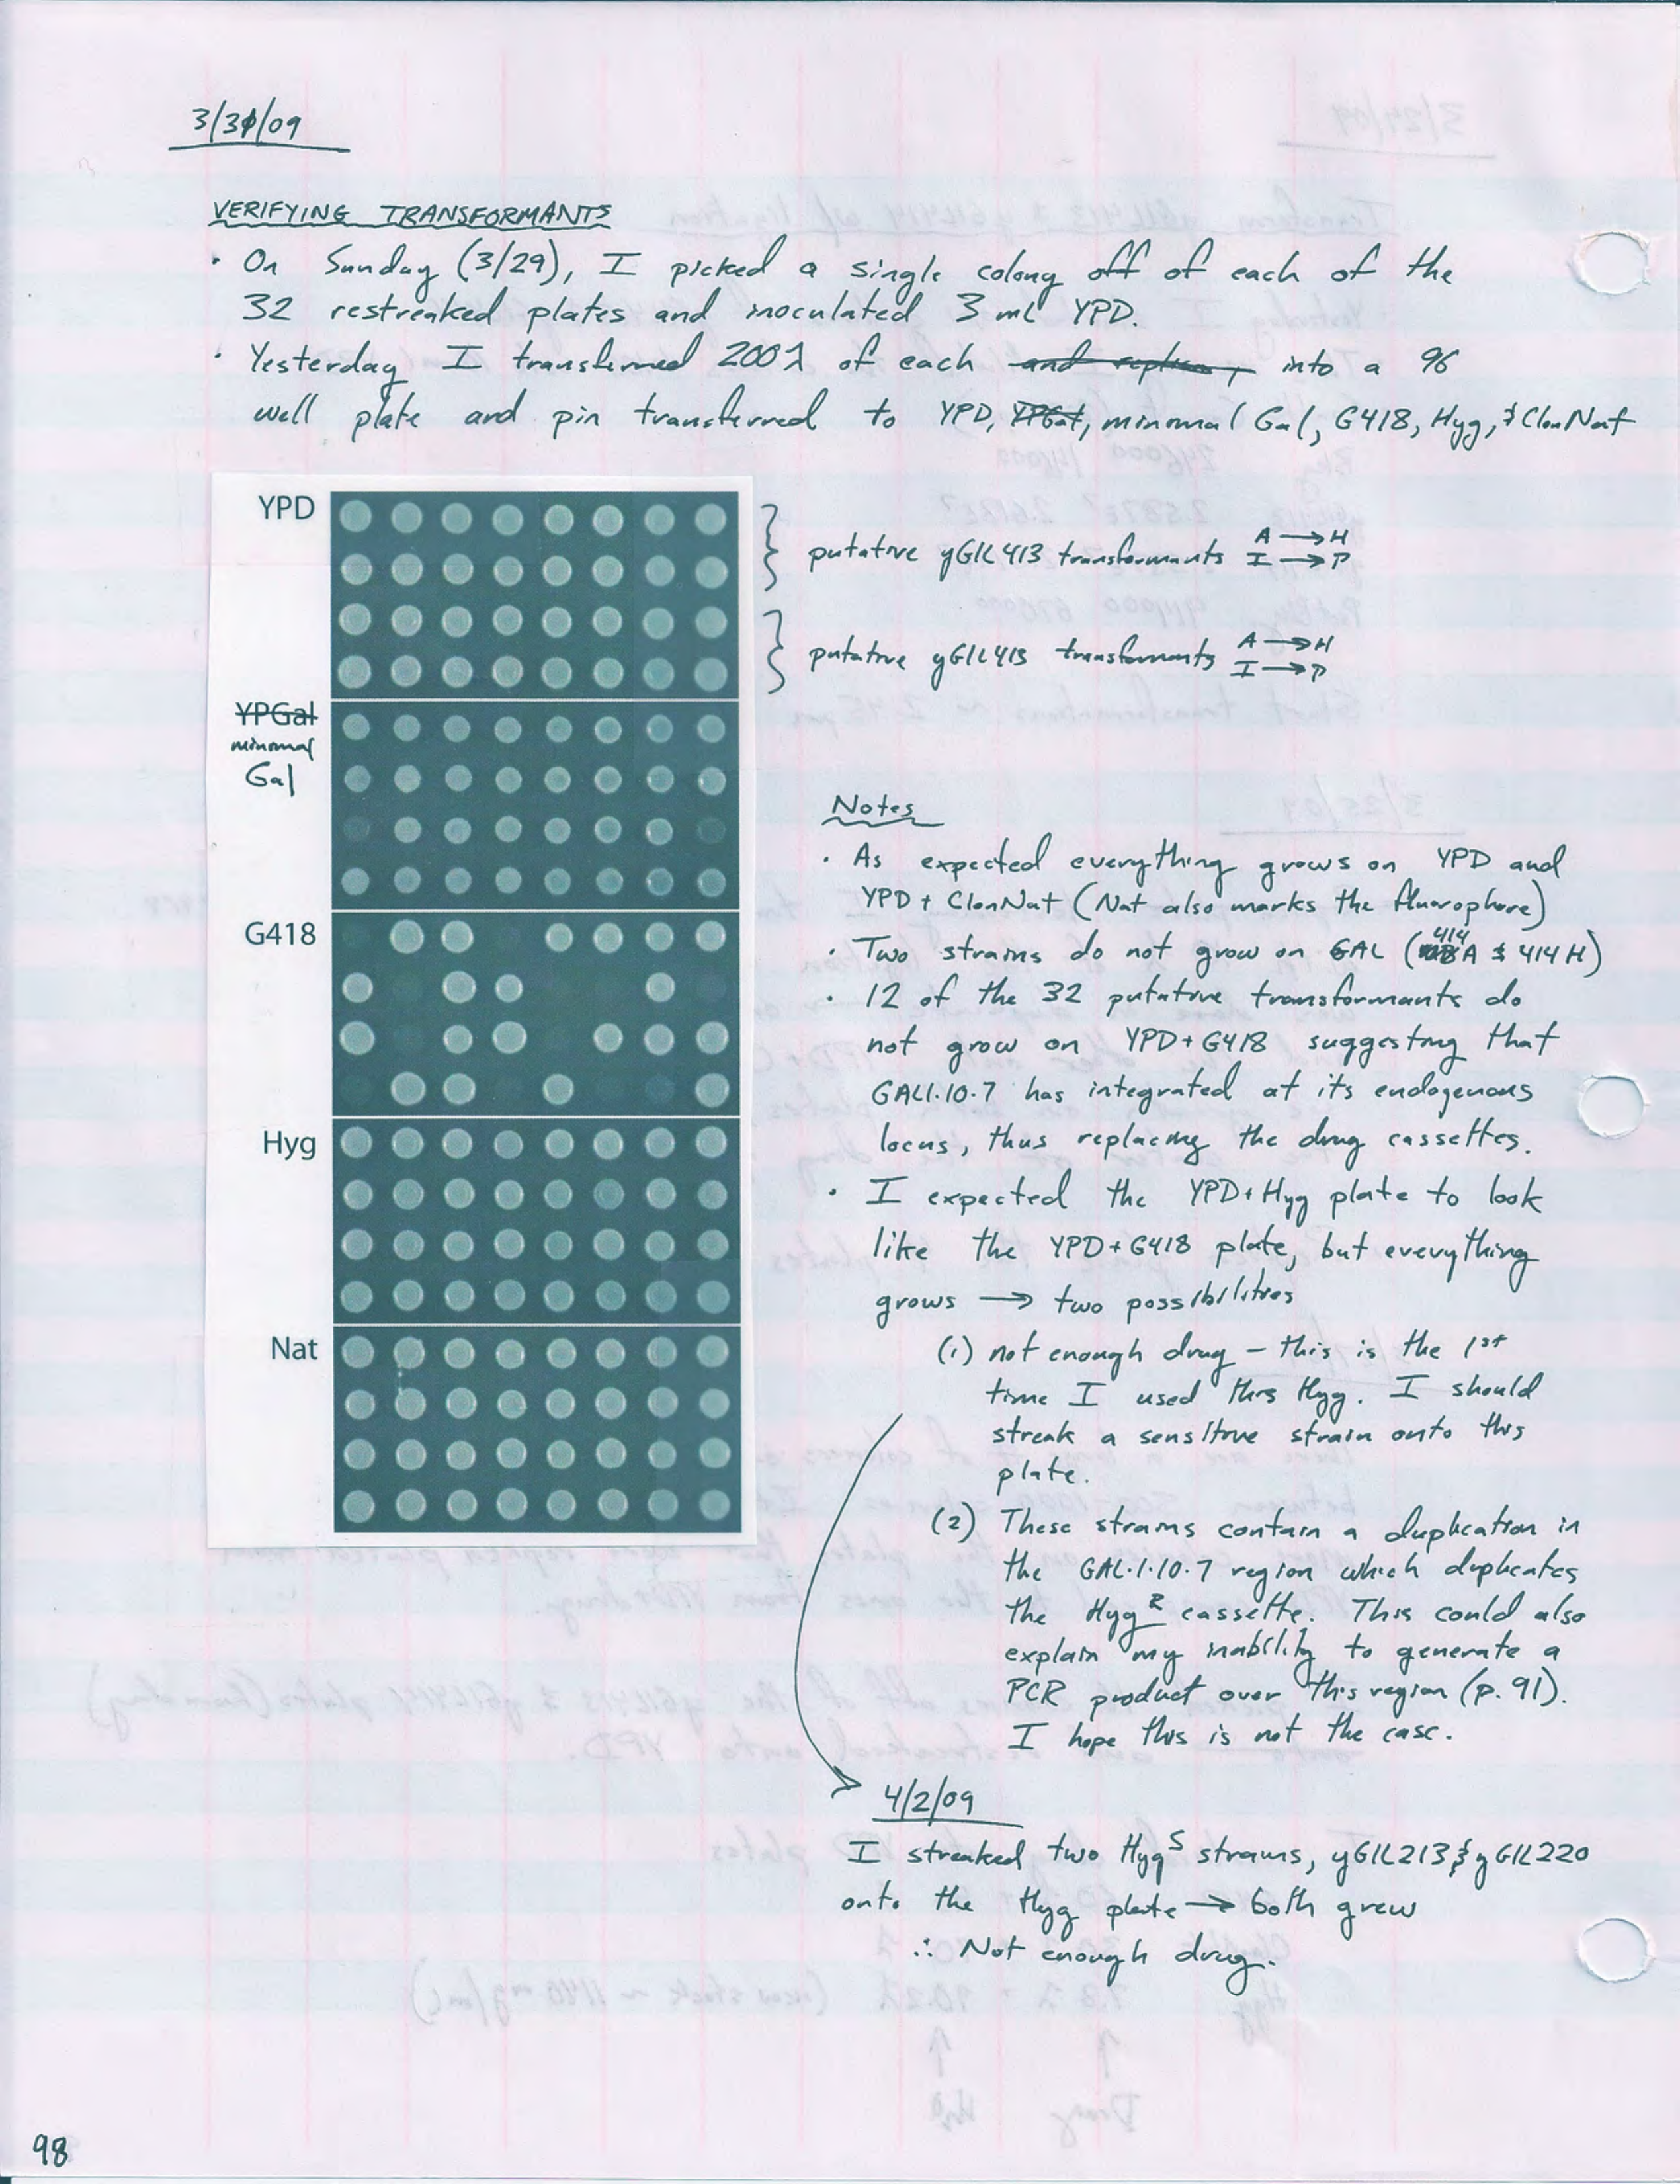 3/31/09
VERIFYING TRANSFORMANTS
· On Sunday (3/29), I picked a single colony off of each of the
32 restreaked plates and inoculated 3 ml YPD.
· Yesterday I transferred 200λ of each and replica, into a 96
well plate and pin transferred to YPD, YPGal, minimal Gal, G418, Hyg, & ClonNat
YPD
putative yGIL413 transformants A → H
I → P
putative yGIL413 transformants A → H
I → P
YPGal
minimal
Gal
G418
Hyg
Nat
Notes
· As expected everything grows on YPD and
YPD + ClonNat (Nat also marks the fluorophore)
· Two strains do not grow on GAL (414 A & 414 H)
· 12 of the 32 putative transformants do
not grow on YPD+G418 suggesting that
GAL1·10·7 has integrated at its endogenous
locus, thus replacing the drug cassettes.
· I expected the YPD+Hyg plate to look
like the YPD+G418 plate, but everything
grows → two possibilities
(1) not enough drug – this is the 1st
time I used this Hyg. I should
streak a sensitive strain onto this
plate.
(2) These strains contain a duplication in
the GAL·1·10·7 region which duplicates
the Hyg R cassette. This could also
explain my inability to generate a
PCR product over this region (p. 91).
I hope this is not the case.
4/2/09
I streaked two Hyg S strains, yGIL213 & yGIL220
onto the Hyg plate → both grew
∴ Not enough drug.
98